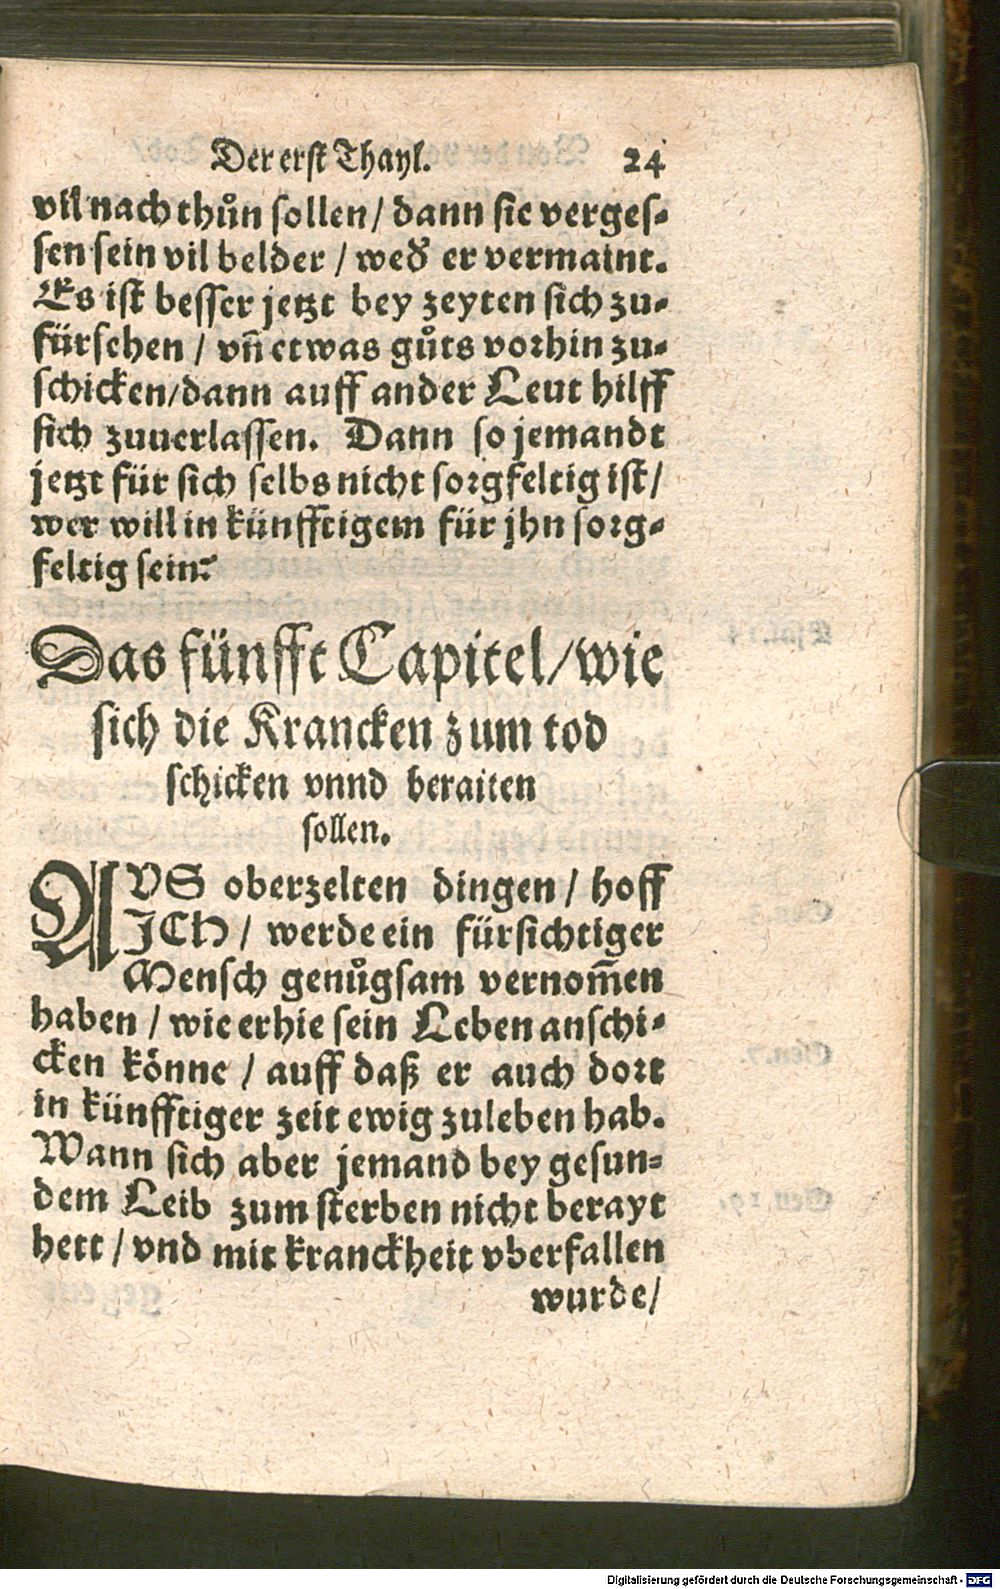 Der erst Thayl. 24
vil nach thůn sollen / dann sie verges-
sen sein vil belder / wed' er vermaint.
Es ist besser jetzt bey zeyten sich zu-
fürsehen / vñ etwas gůts vorhin zu-
schicken/dann auff ander Leut hilff
sich zuuerlassen. Dann so jemandt
jetzt für sich selbs nicht sorgfeltig ist/
wer will in künfftigem für jhn sorg-
feltig sein?
Das fünfft Capitel/wie
sich die Krancken zum tod
schicken vnnd beraiten
sollen.
AVS oberzelten dingen / hoff
JCH / werde ein fürsichtiger
Mensch genůgsam vernom̃en
haben / wie er hie sein Leben anschi-
cken könne / auff daß er auch dort
in künfftiger zeit ewig zuleben hab.
Wann sich aber jemand bey gesun-
dem Leib zum sterben nicht berayt
hett / vnd mit kranckheit vberfallen
wurde/
Digitalisierung gefördert durch die Deutsche Forschungsgemeinschaft - DFG